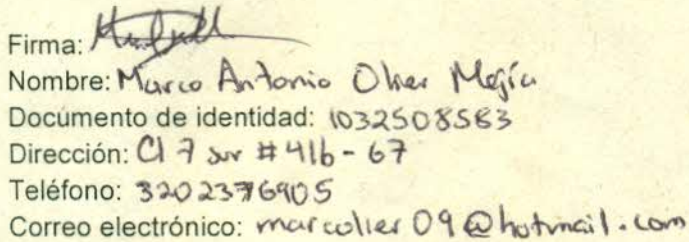 Firma:
Nombre: Marco Antonio Olier Mejía
Documento de identidad: 1032508583
Dirección: Cl 7 sur # 41b - 67
Teléfono: 3202376905
Correo electrónico: marcolier09@hotmail.com